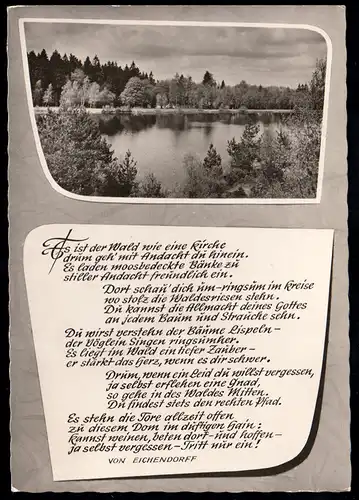 Es ist der Wald wie eine Kirche
drum geh' mit Andacht du hinein.
Es laden moosbedeckte Bänke zu
stiller Andacht freundlich ein.
Dort schau' dich um-ringsum im Kreise
wo stolz die Waldesriesen stehn.
Du kannst die Allmacht deines Gottes
an jedem Baum und Strauche sehn.
Du wirst verstehn der Bäume Lispeln-
der Vöglein Singen ringsumher.
Es liegt im Wald ein tiefer Zauber-
er stärkt das Herz, wenn es dir schwer.
Drum, wenn ein Leid du willst vergessen,
ja selbst erflehen eine Gnad,
so gehe in des Waldes Mitten.
Du findest stets den rechten Pfad.
Es stehn die Tore allzeit offen
zu diesem Dom im duftigen Hain:
kannst weinen, beten dort-und hoffen-
ja selbst vergessen-Tritt nur ein!
VON EICHENDORFF